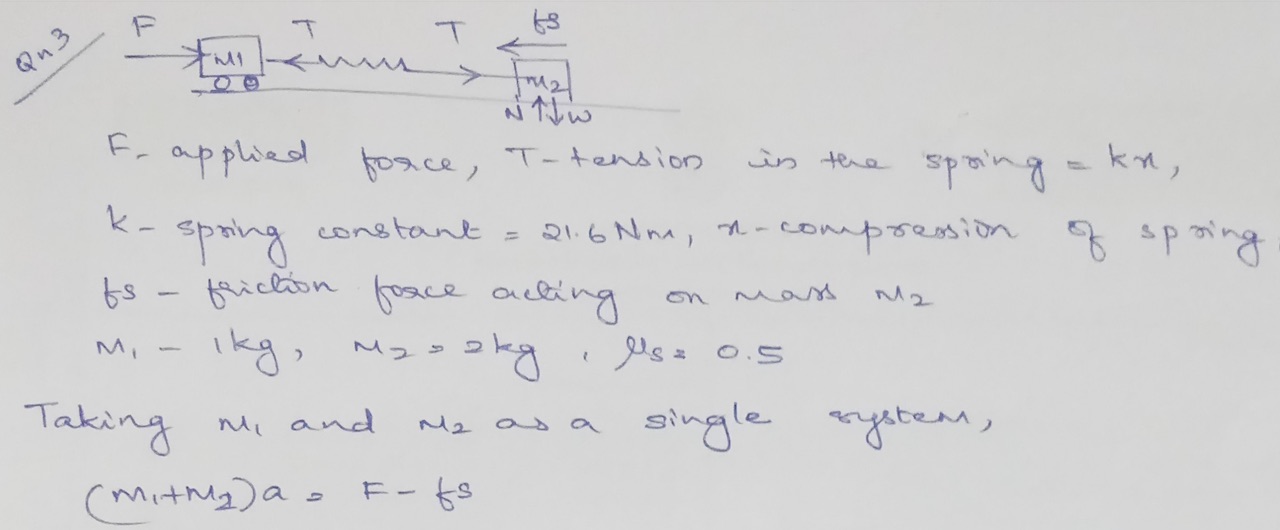 Qn3
F T T fs
M1 M2
N W
F- applied force, T-tension in the spring = kx,
k- spring constant = 21.6 Nm, x-compression of spring
fs - friction force acting on mass M2
M1 - 1kg, M2 = 2kg, μs = 0.5
Taking M1 and M2 as a single system,
(M1+M2)a = F - fs